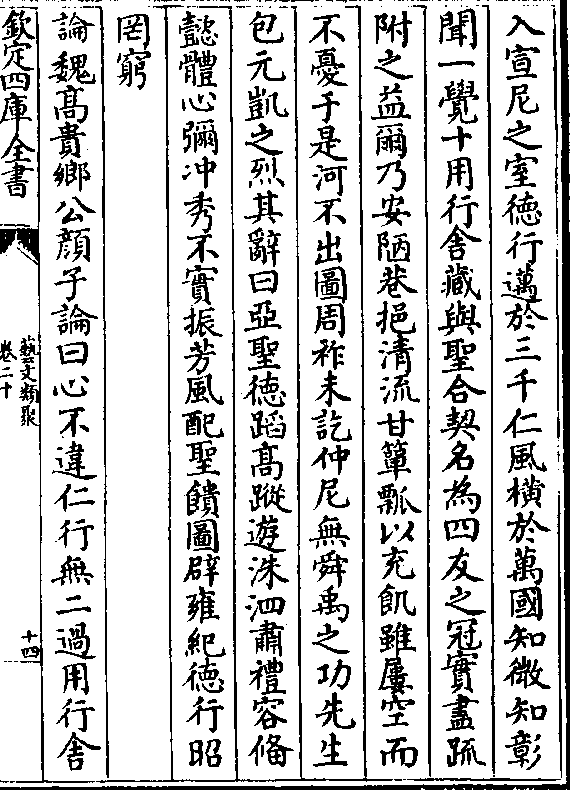 入宣尼之室徳行邁於三千仁風橫於萬國知微知彰
聞一覺十用行舍藏與聖合契名為四友之冠實盡疏
附之益爾乃安陋巷挹清流甘簞瓢以充飢雖屢空而
不憂于是河不出圖周祚未訖仲尼無舜禹之功先生
包元凱之烈其辭曰亞聖徳蹈高蹤遊洙泗肅禮容備
懿體心彌冲秀不實振芳風配聖饋圖辟雍紀徳行昭
罔窮
論魏髙貴鄉公顔子論曰心不違仁行無二過用行舍
欽定四庫全書
藝文類聚
卷二十
十四